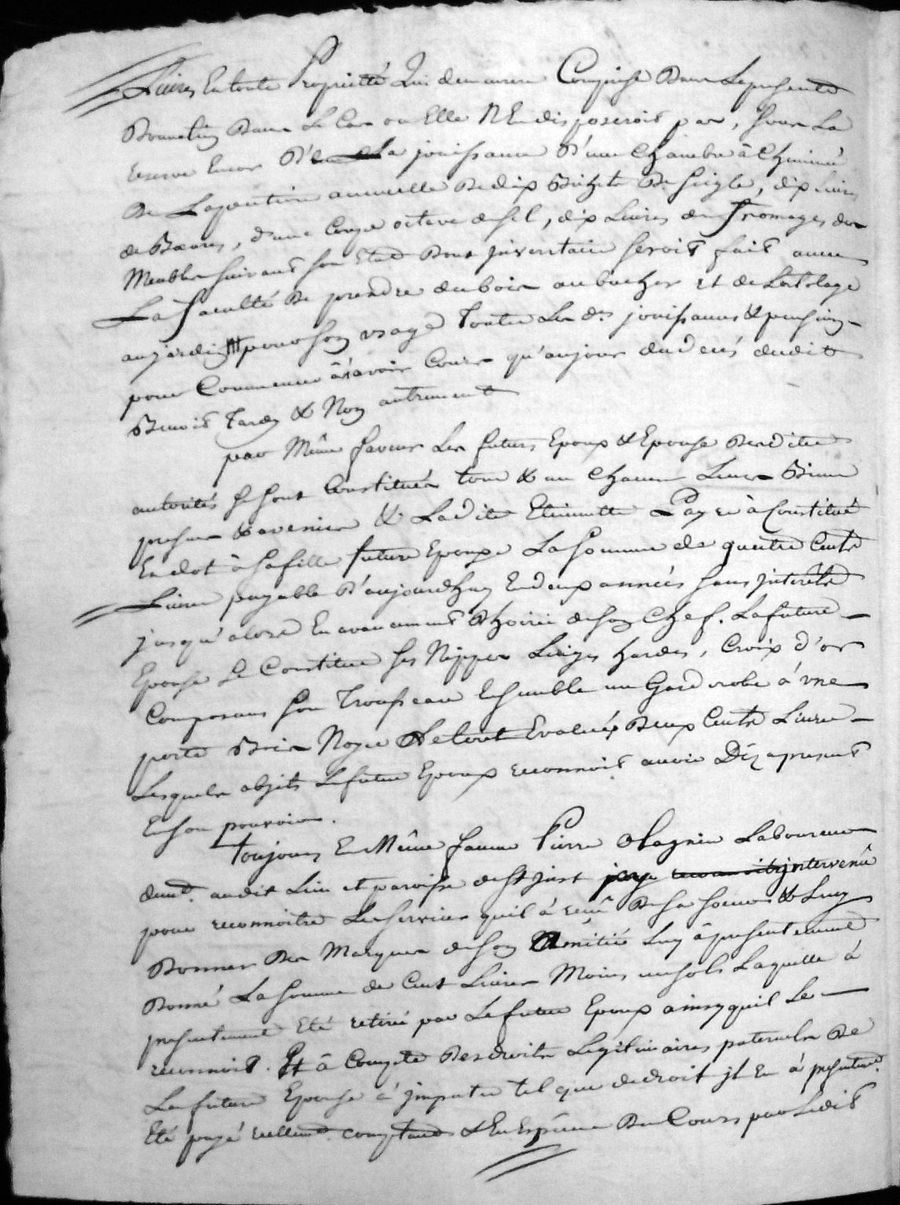 Livres En toute Propriété Qui demeurera Comprise Dans Le présente
Donnation Dans Le Cas ou Elle N'En disposeroit pas, Sous La
reserve Encor De La jouissance D'une Chambre à Cheminée
De La pention annuelle De dix Bichets De Seigle, dix Livres
de Beures, d'une Coupe octave de sel, dix Livres de fromages, des
Meubles suivant son Etat Dont Inventaire seroit fait avec
La faculté De prendre du bois au bucher et de Lortolage
au jardin pour son usage Toutes Les des. jouissances & pension
pour Commencer à avoir Cours qu'au jour du décés dudit
Benoit Tardy & Non autrement
par Même faveur Les futurs Epoux & Epouse De Ladite
autorités se sont Constitués tous & un Chacun Leurs Biens
presens & avenir & Ladite Etiennette à Constitué
En dot à sa fille future Epouse La somme de quatre Cents
Livres payable D'aujourdhuy En deux années sans Interêts
jusqu'alors En avancement D'hoirie de son Chef. La future
Epouse Se Constitue ses Nippes Linges hardes, Croix d'or
Composant son Trousseau Ensemble un Garderobe à une
porte Bois Noyer Le tout Evalué Deux Cents Livres
Lesquels objets Le futur Epoux reconnoit avoir Déz apresent
En son pouvoir.
Toujours En Même faveur Pierre Laboureur
demt. audit Lieu et paroisse de St just intervenû
pour reconnoitre Les services quil à reçû De Sa soeur & Luy
Donner Des Marques de son Amitié Luy à presentement
Donné La somme de Cent Livres Moins un sols Laquelle à
presentement Eté retiré par Le futur Epoux ainsy quil Le
reconnoit. Et à Compte Des droits Legitimaires paternels De
La future Epouse à imputer tel que de droit il En à presentemt.
Eté payé réellemt. comptant & En Espéce De Cours par Ledit